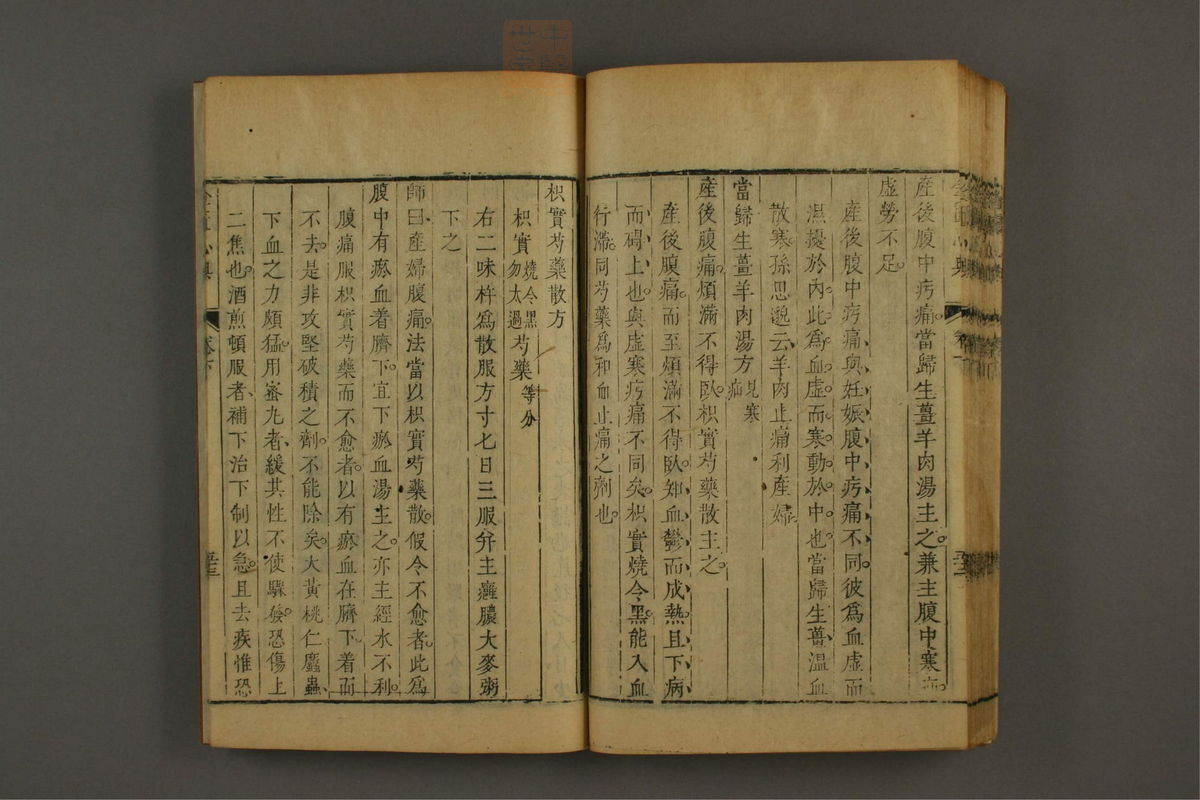 產後腹中㽲痛當歸生薑羊肉湯主之兼主腹中寒疝
虛勞不足
產後腹中㽲痛與妊娠腹中㽲痛不同彼爲血虛而
濕擾於內此爲血虛而寒動於中也當歸生薑溫血
散寒孫思邈云羊肉止痛利產婦
當歸生薑羊肉湯方見寒疝
產後腹痛煩滿不得臥枳實芍藥散主之
產後腹痛而至煩滿不得臥知血鬱而成熱且下病
而礙上也與虛寒㽲痛不同矣枳實燒令黑能入血
行滯同芍藥爲和血止痛之劑也
枳實芍藥散方
枳實燒令黑勿太過芍藥等分
右二味杵爲散服方寸匕日三服并主癰膿大麥粥
下之
師曰產婦腹痛法當以枳實芍藥散假令不愈者此爲
腹中有瘀血着臍下宜下瘀血湯主之亦主經水不利
腹痛服枳實芍藥而不愈者以有瘀血在臍下着而
不去是非攻堅破積之劑不能除矣大黃桃仁䗪蟲
下血之力頗猛用蜜丸者緩其性不使驟發恐傷上
二焦也酒煎頓服者補下治下制以急且去疾惟恐
卷下